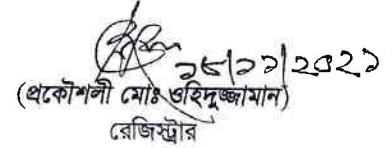 ২৮/১১/২০২১
(প্রকৌশলী মোঃ ওহিদুজ্জামান)
রেজিস্ট্রার